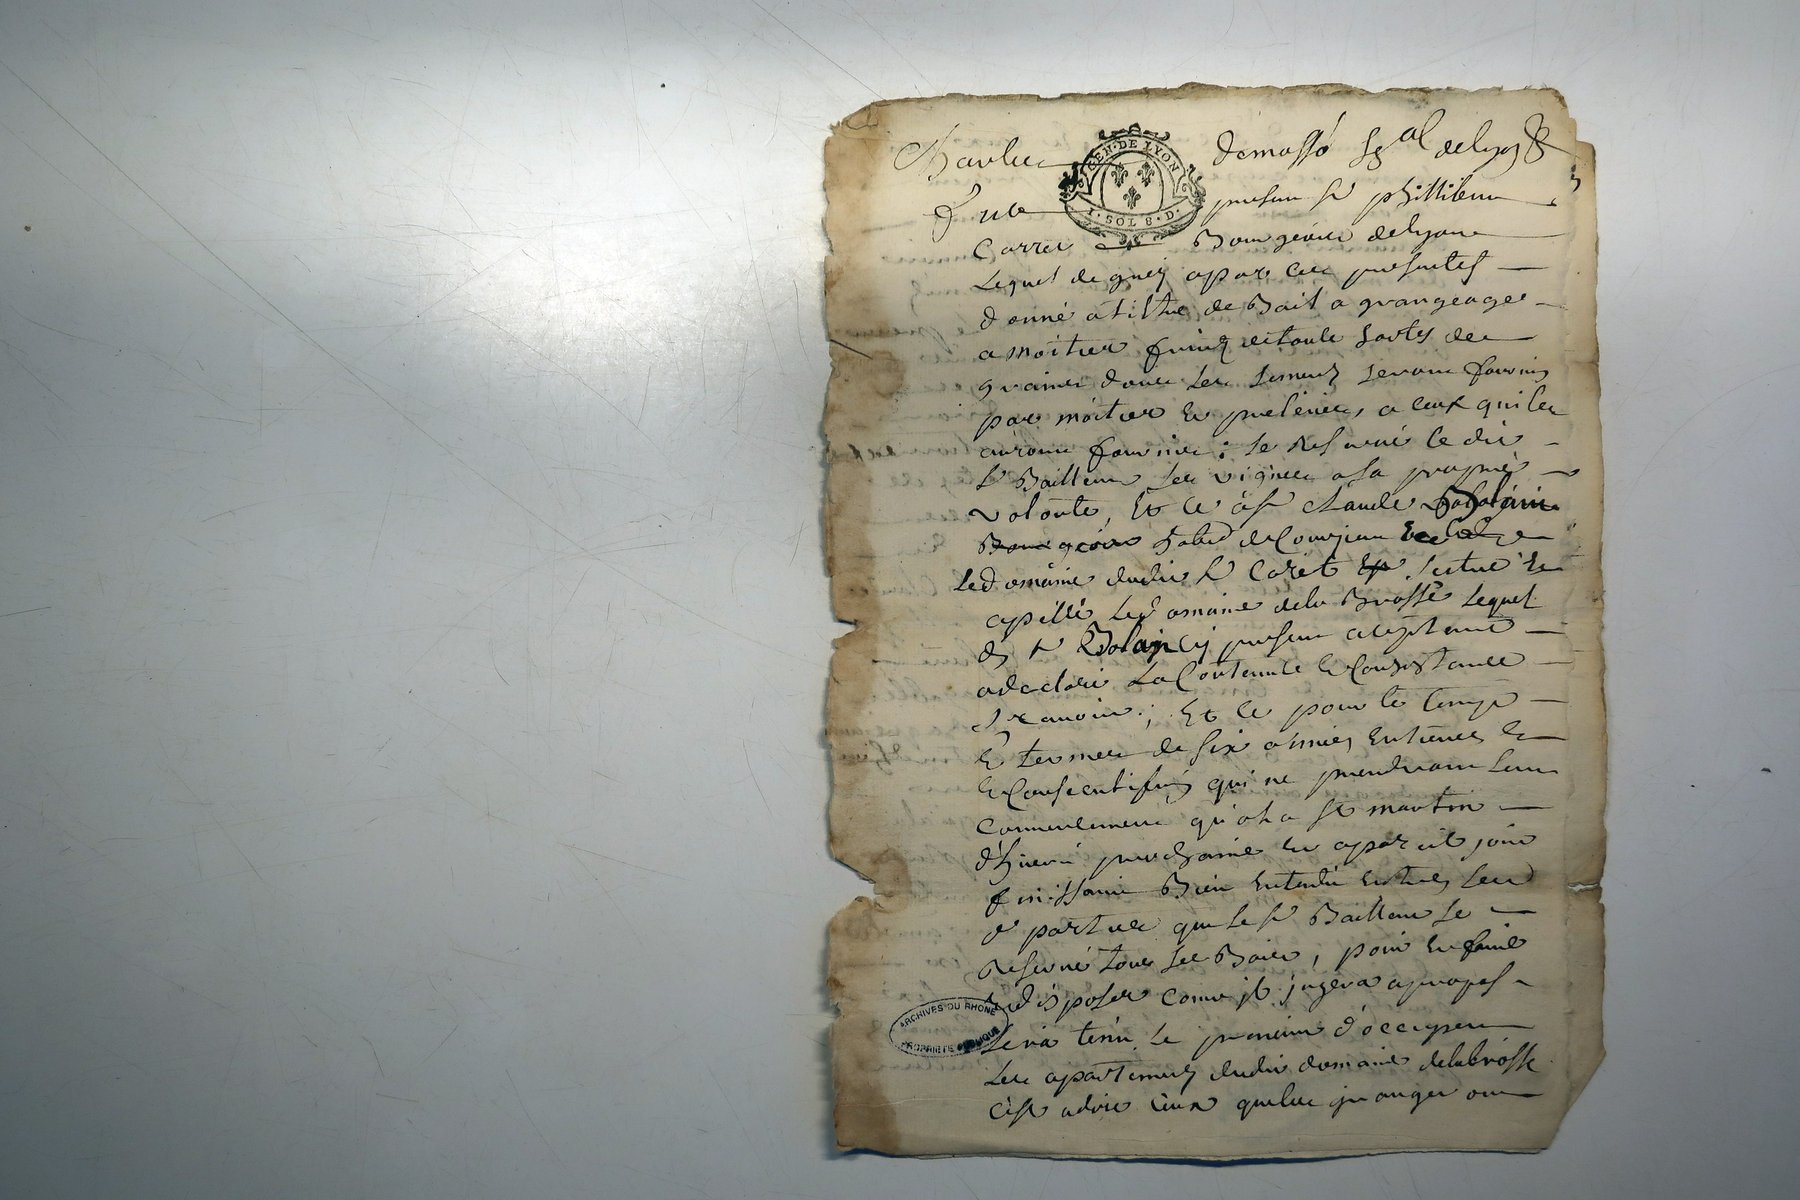 GEN·DE LYON
1·SOL 8·D·
Carret Bourgeois de lyon
Lequel de gré a par ces presentes
donné a tiltre de Bail a grangeage
a moitier fruicts et toute sortes de
graines dont les seront fournis
par moitier et prelevés, a ceux qui les
auront fournies; se Reservé le dit
Sr Bailleur les vignes a sa propre
volonté, Et ce a Sr Claude
Bourgeois habt de Courzieu
Le domaine dudit Sr Caret scitué et
apellé Le domaine de la Brosse Lequel
dt Sr present aceptant
a declaré La Contenüe et Consistance
Scavoir; Et ce pour le temps
Et termes de six années Entieres et
et Consecutifves qui ne prendront leur
Commencement qu'a la St martin
d'hiver prochaine et a pareil jour
finissant Bien Entendu Entre Les
parties que le Sr Bailleur se
Reserve tous les Bois, pour en faire
et disposer come jl jugera a propos
sera tenu le preneur d'occuper
Les apartements dudit domaine de la brosse
c'est a dire ceux que les granger ont
ARCHIVES DU RHONE
PROPRIETE PUBLIQUE